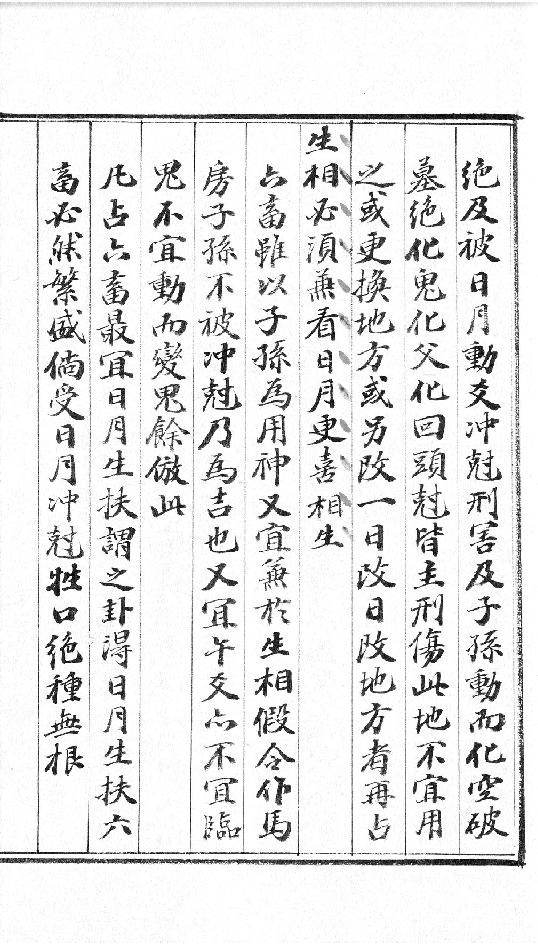 絶及被日月動爻冲尅刑害及子孫動而化空破
墓絶化鬼化父化回頭尅皆主刑傷此地不宜用
之或更換地方或另改一日改日改地方者再占
生相必須兼看日月更喜相生
六畜雖以子孫為用神又宜兼於生相假令作馬
房子孫不被冲尅乃為吉也又冝午爻六不冝臨
鬼不宜動而變鬼餘倣此
凡占六畜最宜日月生扶謂之卦得日月生扶六
畜必然繁盛倘受日月冲尅牲口絶種無根